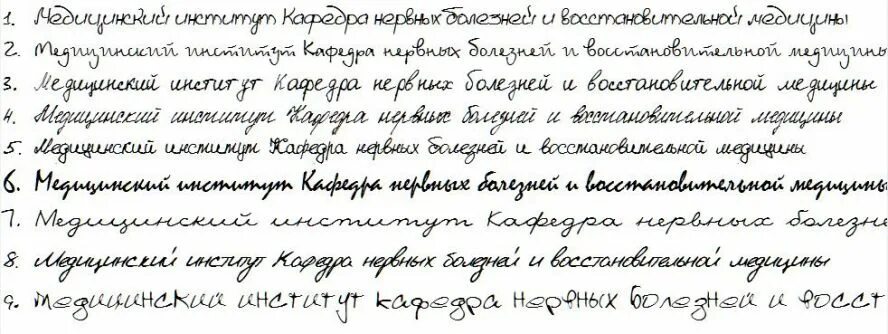 1. Медицинский институт Кафедра нервных болезней и восстановительной медицины
2. Медицинский институт Кафедра нервных болезней и восстановительной медицины
3. Медицинский институт Кафедра нервных болезней и восстановительной медицины
4. Медицинский институт Кафедра нервных болезней и восстановительной медицины
5. Медицинский институт Кафедра нервных болезней и восстановительной медицины
6. Медицинский институт Кафедра нервных болезней и восстановительной медицины
7. Медицинский институт Кафедра нервных болезне
8. Медицинский институт Кафедра нервных болезней и восстановительной медицины
9. Медицинский институт кафедра нервных болезней и восст